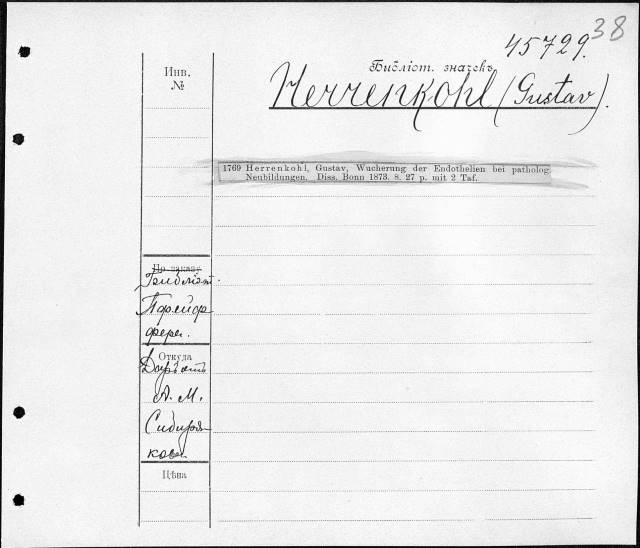 38
45729.
Инв.
№
Библіот. значекъ
Herrenkohl (Gustav).
1769 Herrenkohl, Gustav, Wucherung der Endothelien bei patholog.
Neubildungen. Diss. Bonn 1873. 8. 27 p. mit 2 Taf.
По заказу
Пфейф-
фера.
Откуда
Даръ отъ
А. М.
Сибиря-
кова.
Цѣна